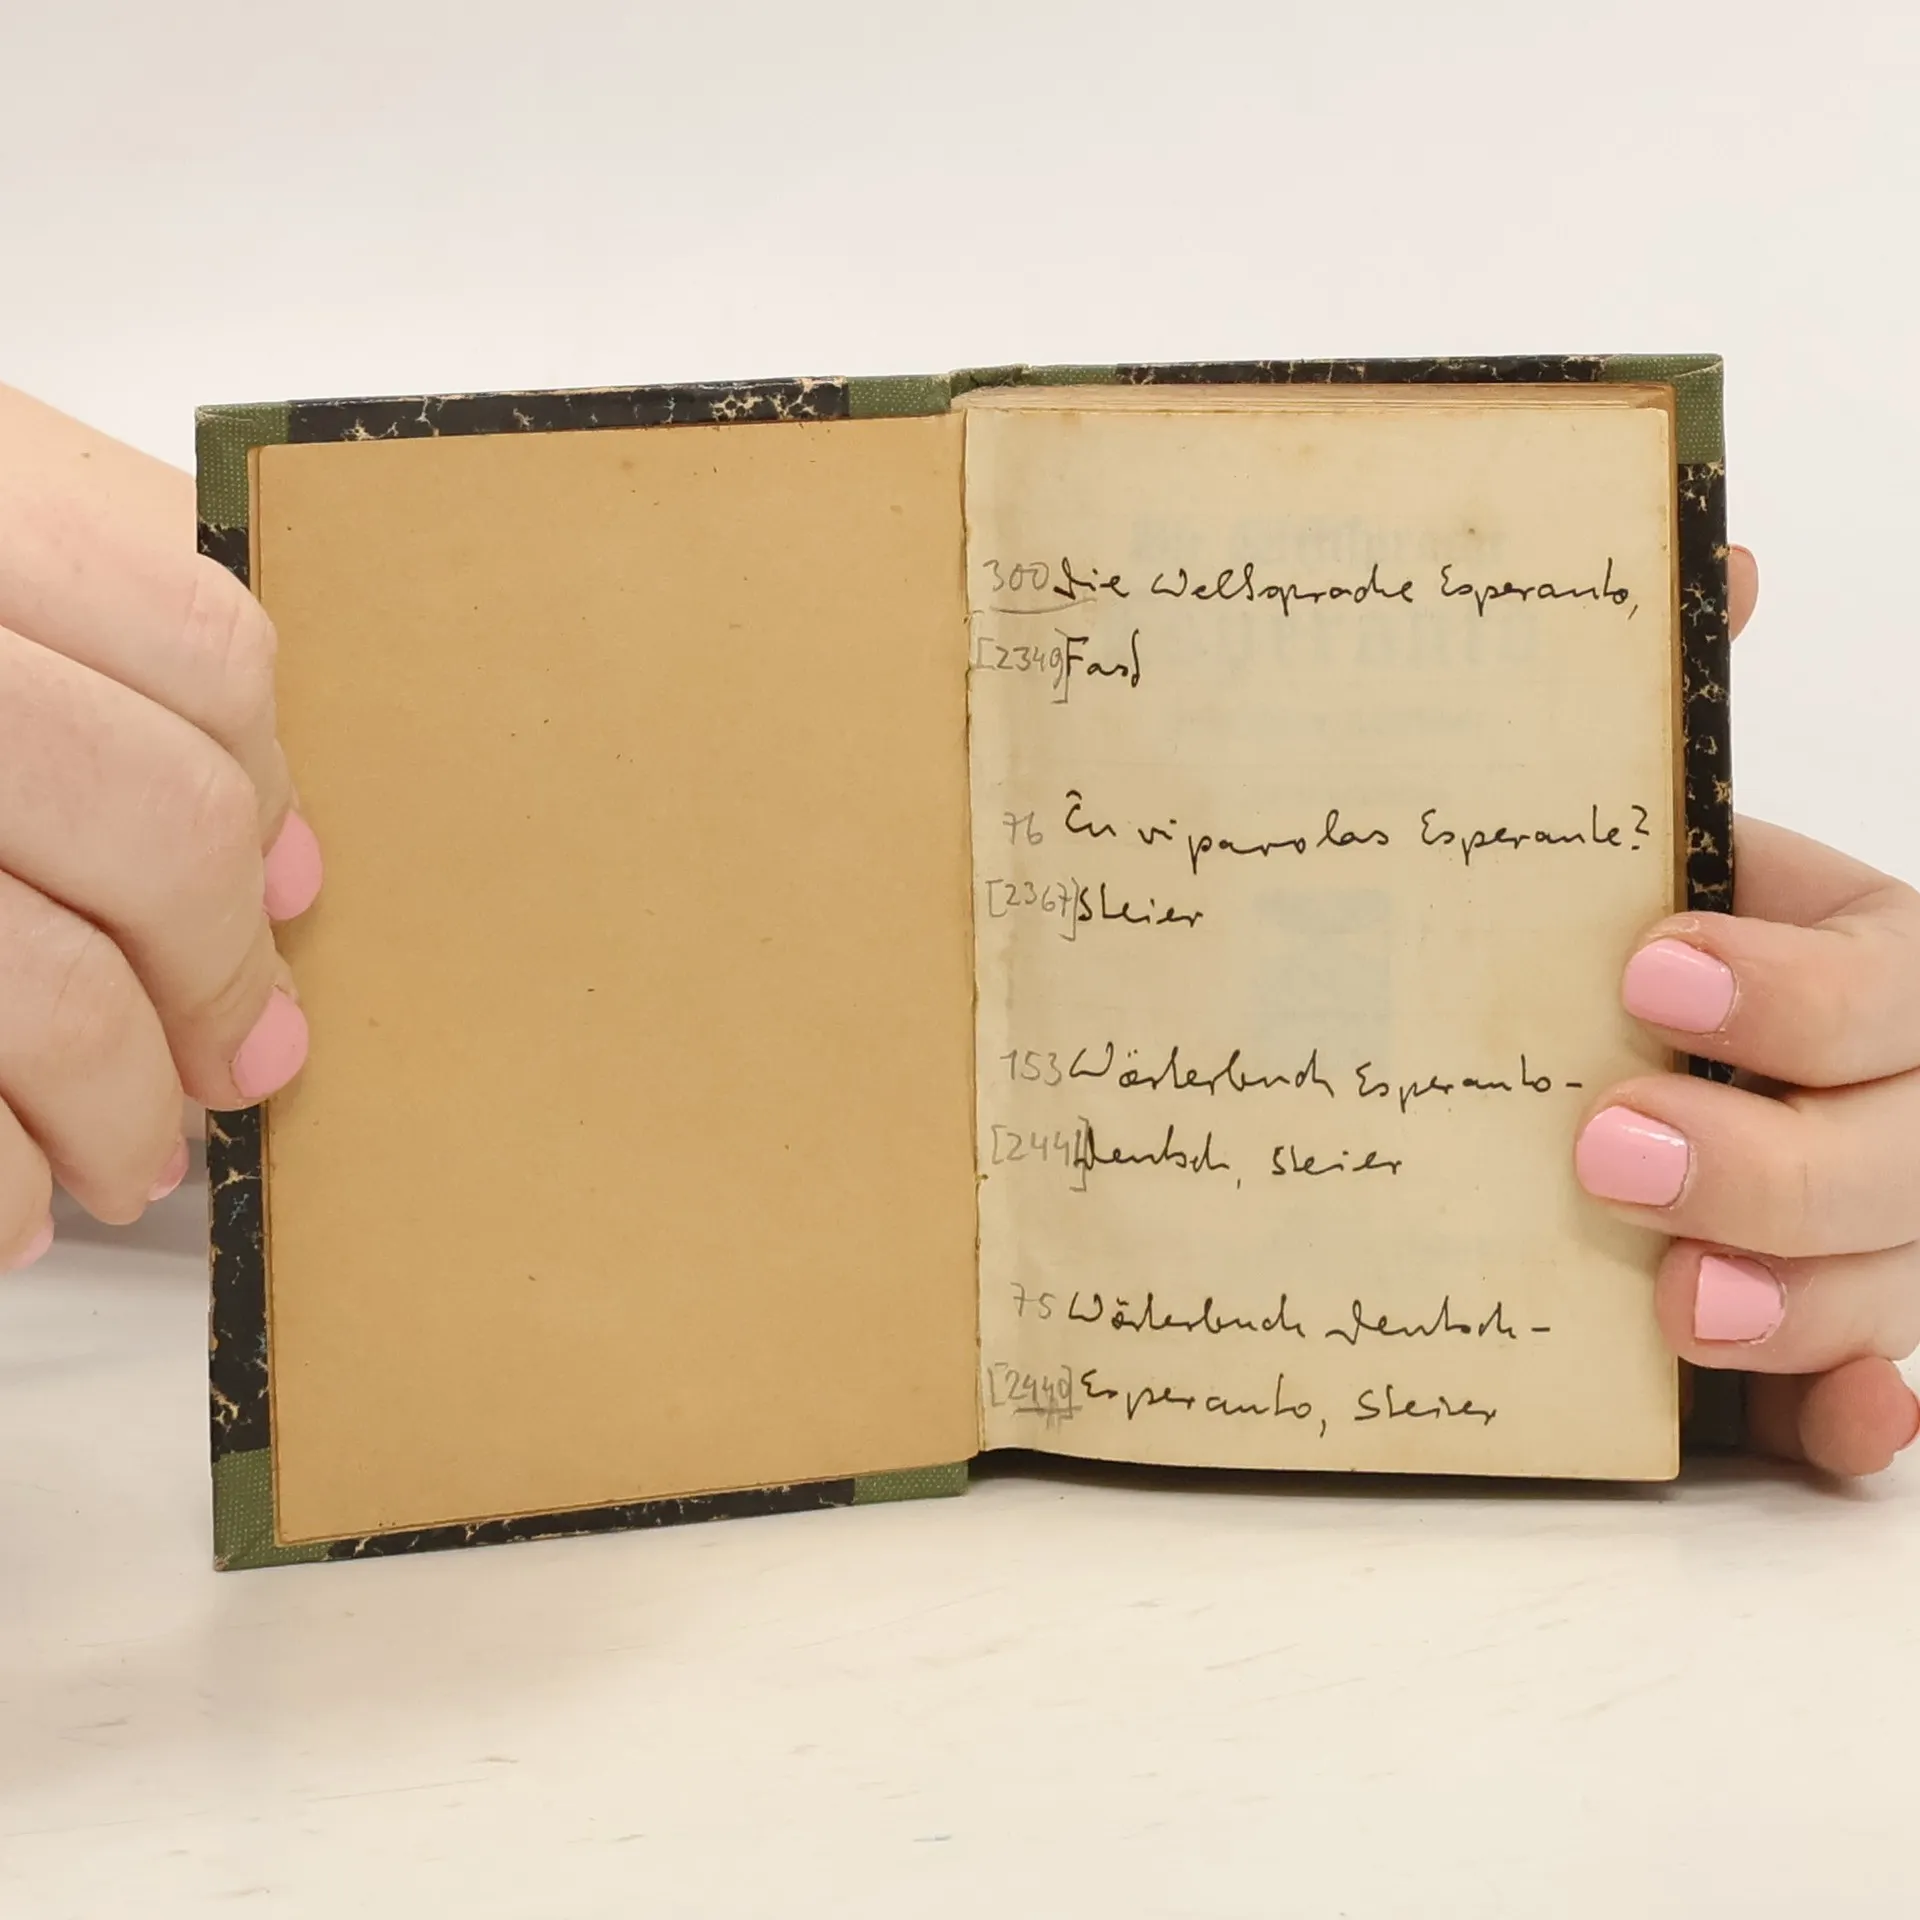 300 Die Weltsprache Esperanto,
[2349] Fast
76 Ĉu vi parolas Esperante?
[2367] Steier
153 Wörterbuch Esperanto-
[2441] Deutsch, Steier
75 Wörterbuch Deutsch-
[2440] Esperanto, Steier